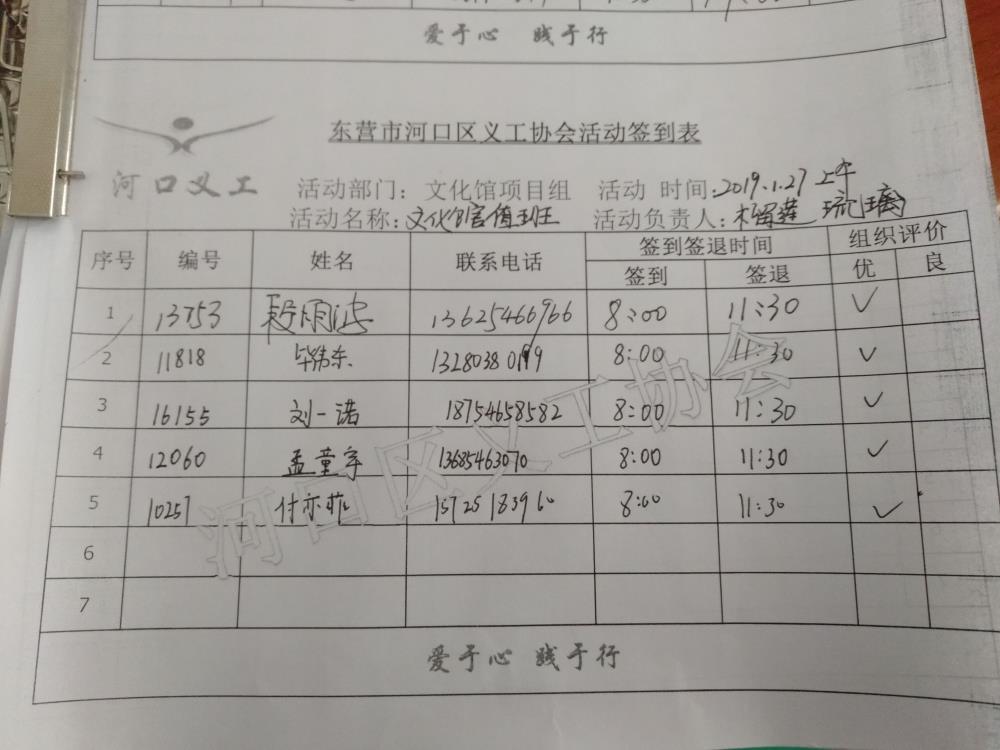 爱于心 践于行
东营市河口区义工协会活动签到表
河口义工
活动部门：文化馆项目组 活动 时间：2019.1.27 上午
活动名称：文化馆值班 活动负责人：榴莲 琉璃
序号 编号 姓名 联系电话 签到签退时间 组织评价
签到 签退 优 良
1 13753 段雨 13625466966 8:00 11:30 ✓
2 11818 毕韩东 13280380199 8:00 11:30 ✓
3 16155 刘一诺 18754658582 8:00 11:30 ✓
4 12060 孟童宇 13685463070 8:00 11:30 ✓
5 10257 付亦菲 15725183960 8:00 11:30 ✓
6
7
河口区义工协会
爱于心 践于行